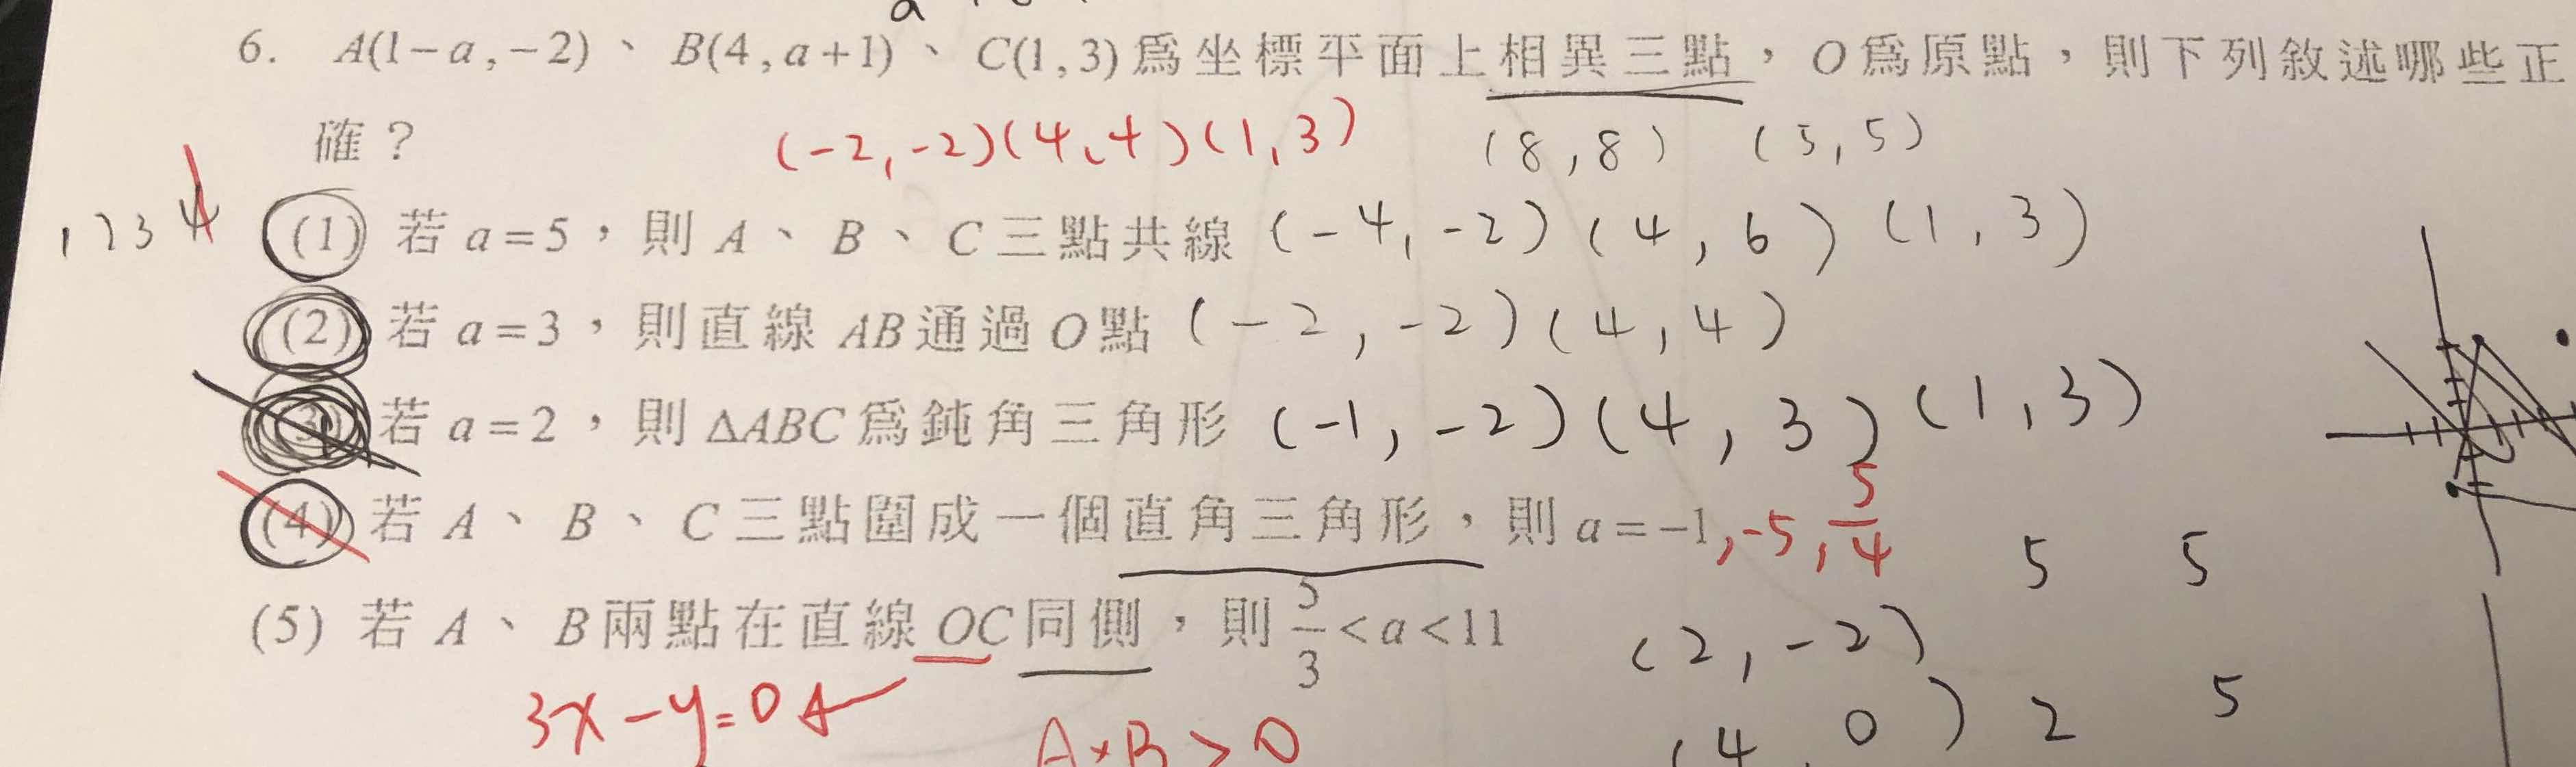 6. A(1-a,-2)、B(4,a+1)、C(1,3)為坐標平面上相異三點，O為原點，則下列敘述哪些正
確？ (-2,-2)(4,4)(1,3) (8,8) (5,5)
1234 (1) 若 a=5，則 A、B、C三點共線 (-4,-2) (4,6) (1,3)
(2) 若 a=3，則直線 AB通過 O點 (-2,-2)(4,4)
(3) 若 a=2，則 ΔABC為鈍角三角形 (-1,-2)(4,3)(1,3)
(4) 若 A、B、C三點圍成一個直角三角形，則 a=-1,-5,5/4 5 5
(5) 若 A、B兩點在直線 OC同側，則 5/3<a<11 (2,-2)
3x-y=0 A×B>0 (4,0) 2 5